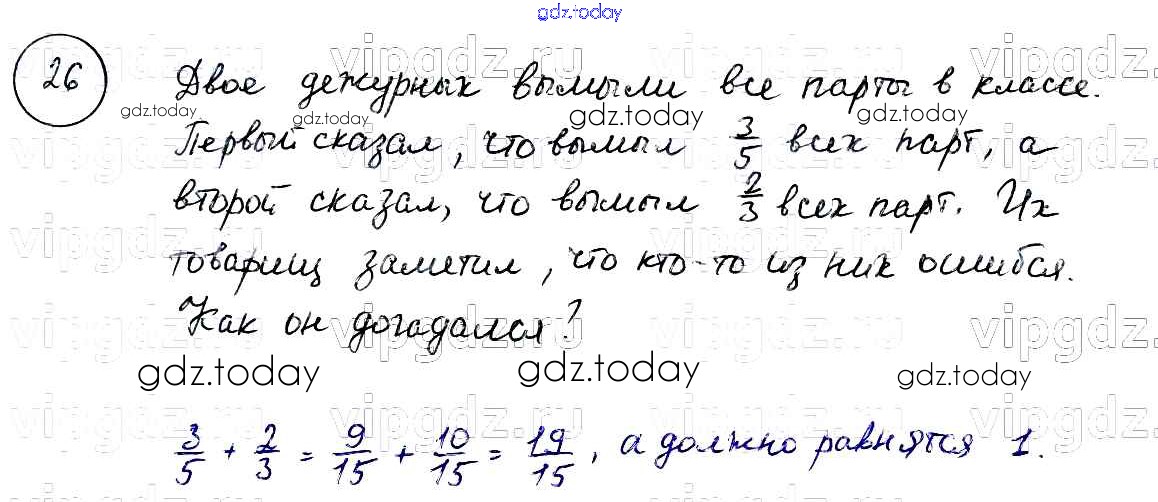 gdz.today
26 Двое дежурных вымыли все парты в классе.
gdz.today gdz.today gdz.today
Первый сказал, что вымыл 3/5 всех парт, а
второй сказал, что вымыл 2/3 всех парт. Их
товарищ заметил, что кто-то из них ошибся.
Как он догадался?
gdz.today gdz.today gdz.today
3/5 + 2/3 = 9/15 + 10/15 = 19/15, а должно равнятся 1.